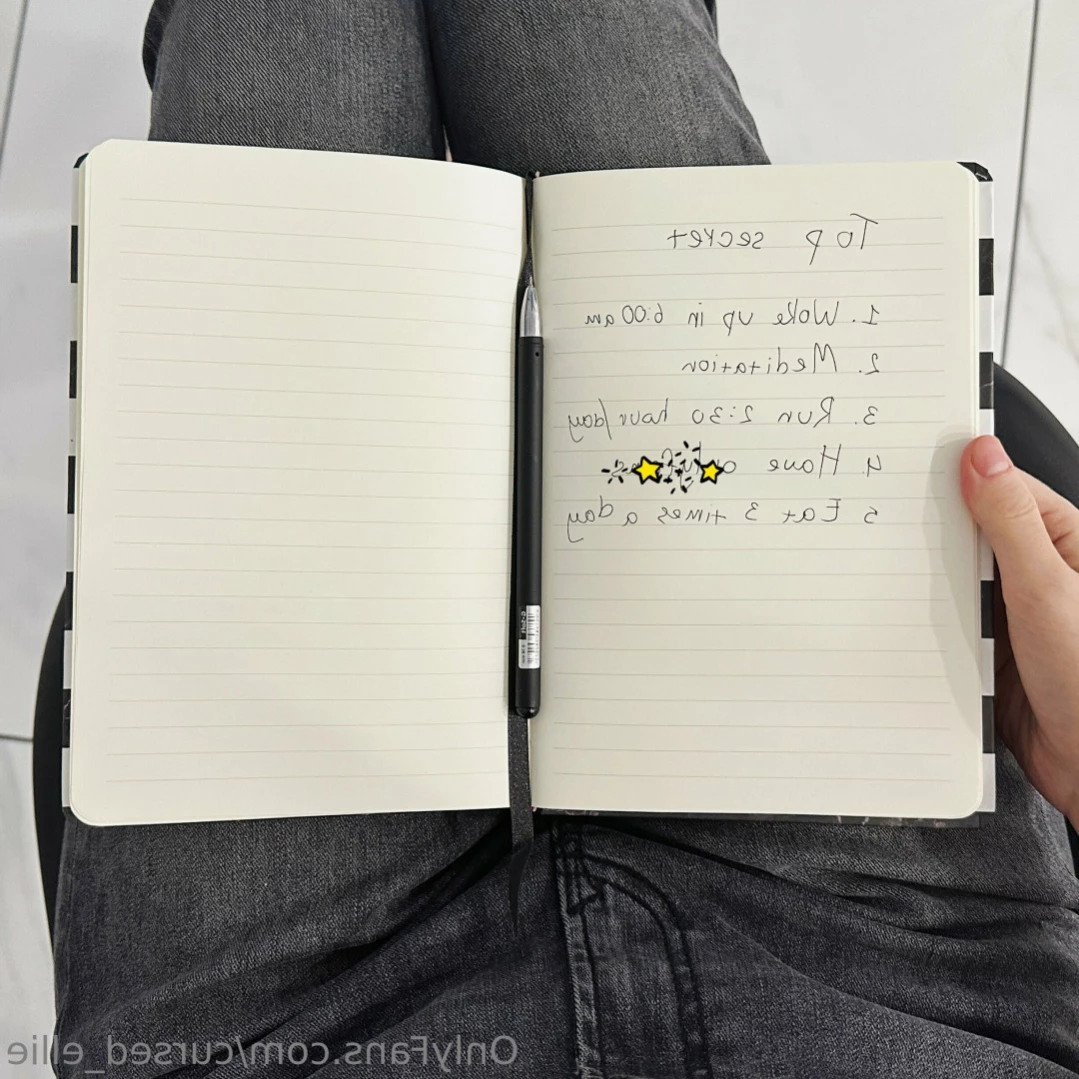 Top secret
1. Wake up in 6:00 am
2. Meditation
3. Run 2:30 hour/day
4. Have
5 Eat 3 times a day
OnlyFans.com/cursed_ellie